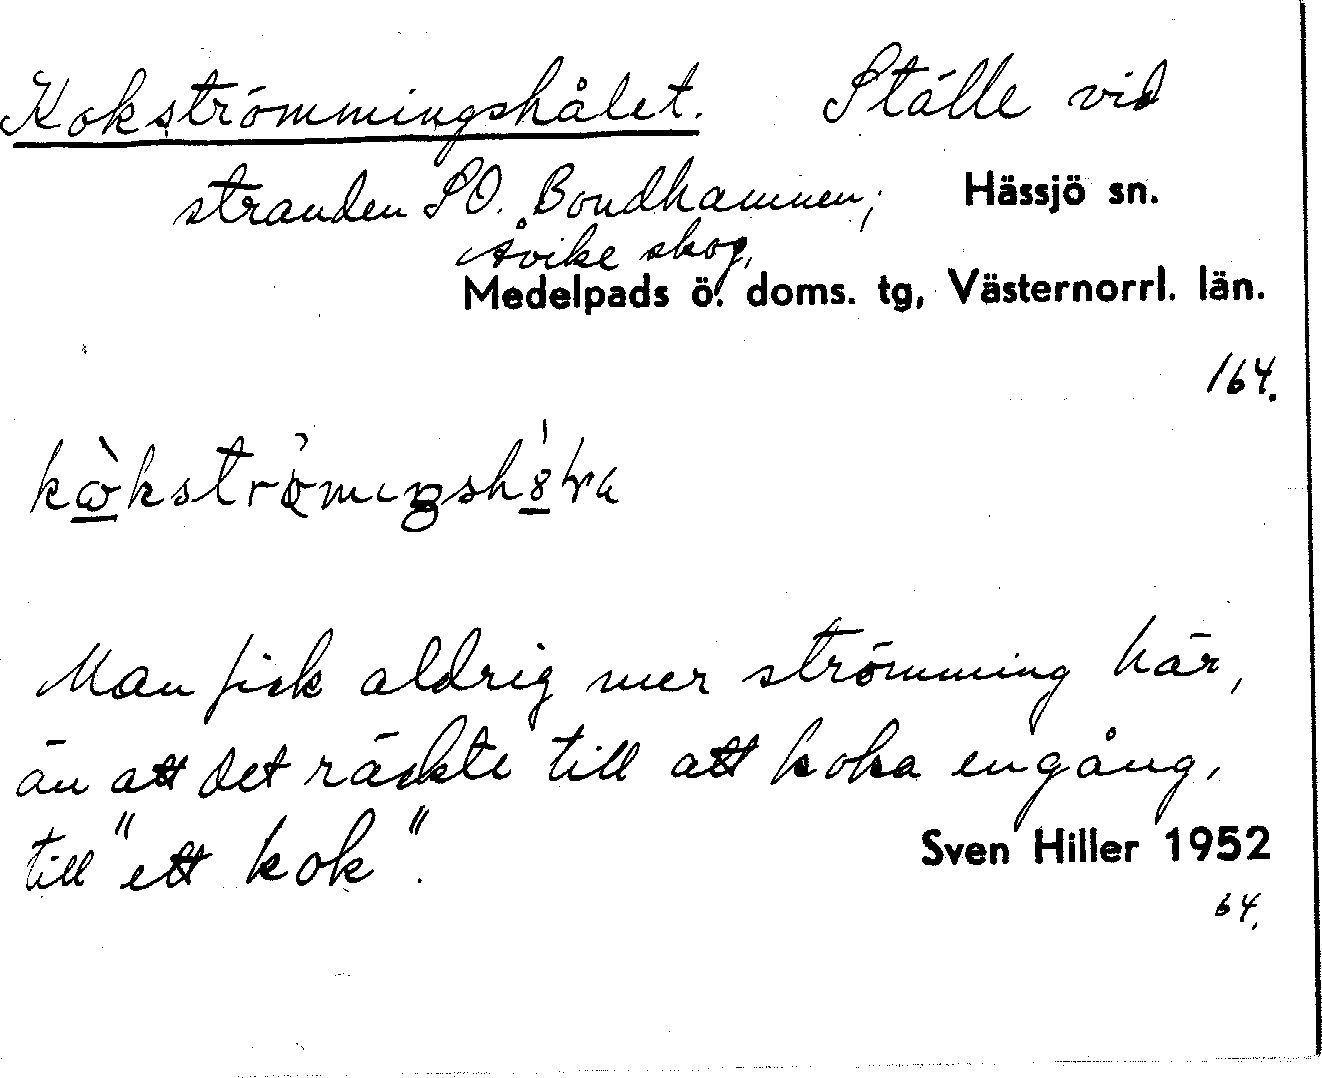 Kokströmmingshålet. Ställe vid
stranden SO. Bondhamnen; Hässjö sn.
Åvike skog,
Medelpads ö. doms. tg, Västernorrl. län.
164.
Man fick aldrig mer strömming här,
än att det räckte till att koka engång,
till "ett kok".
Sven Hiller 1952
64.